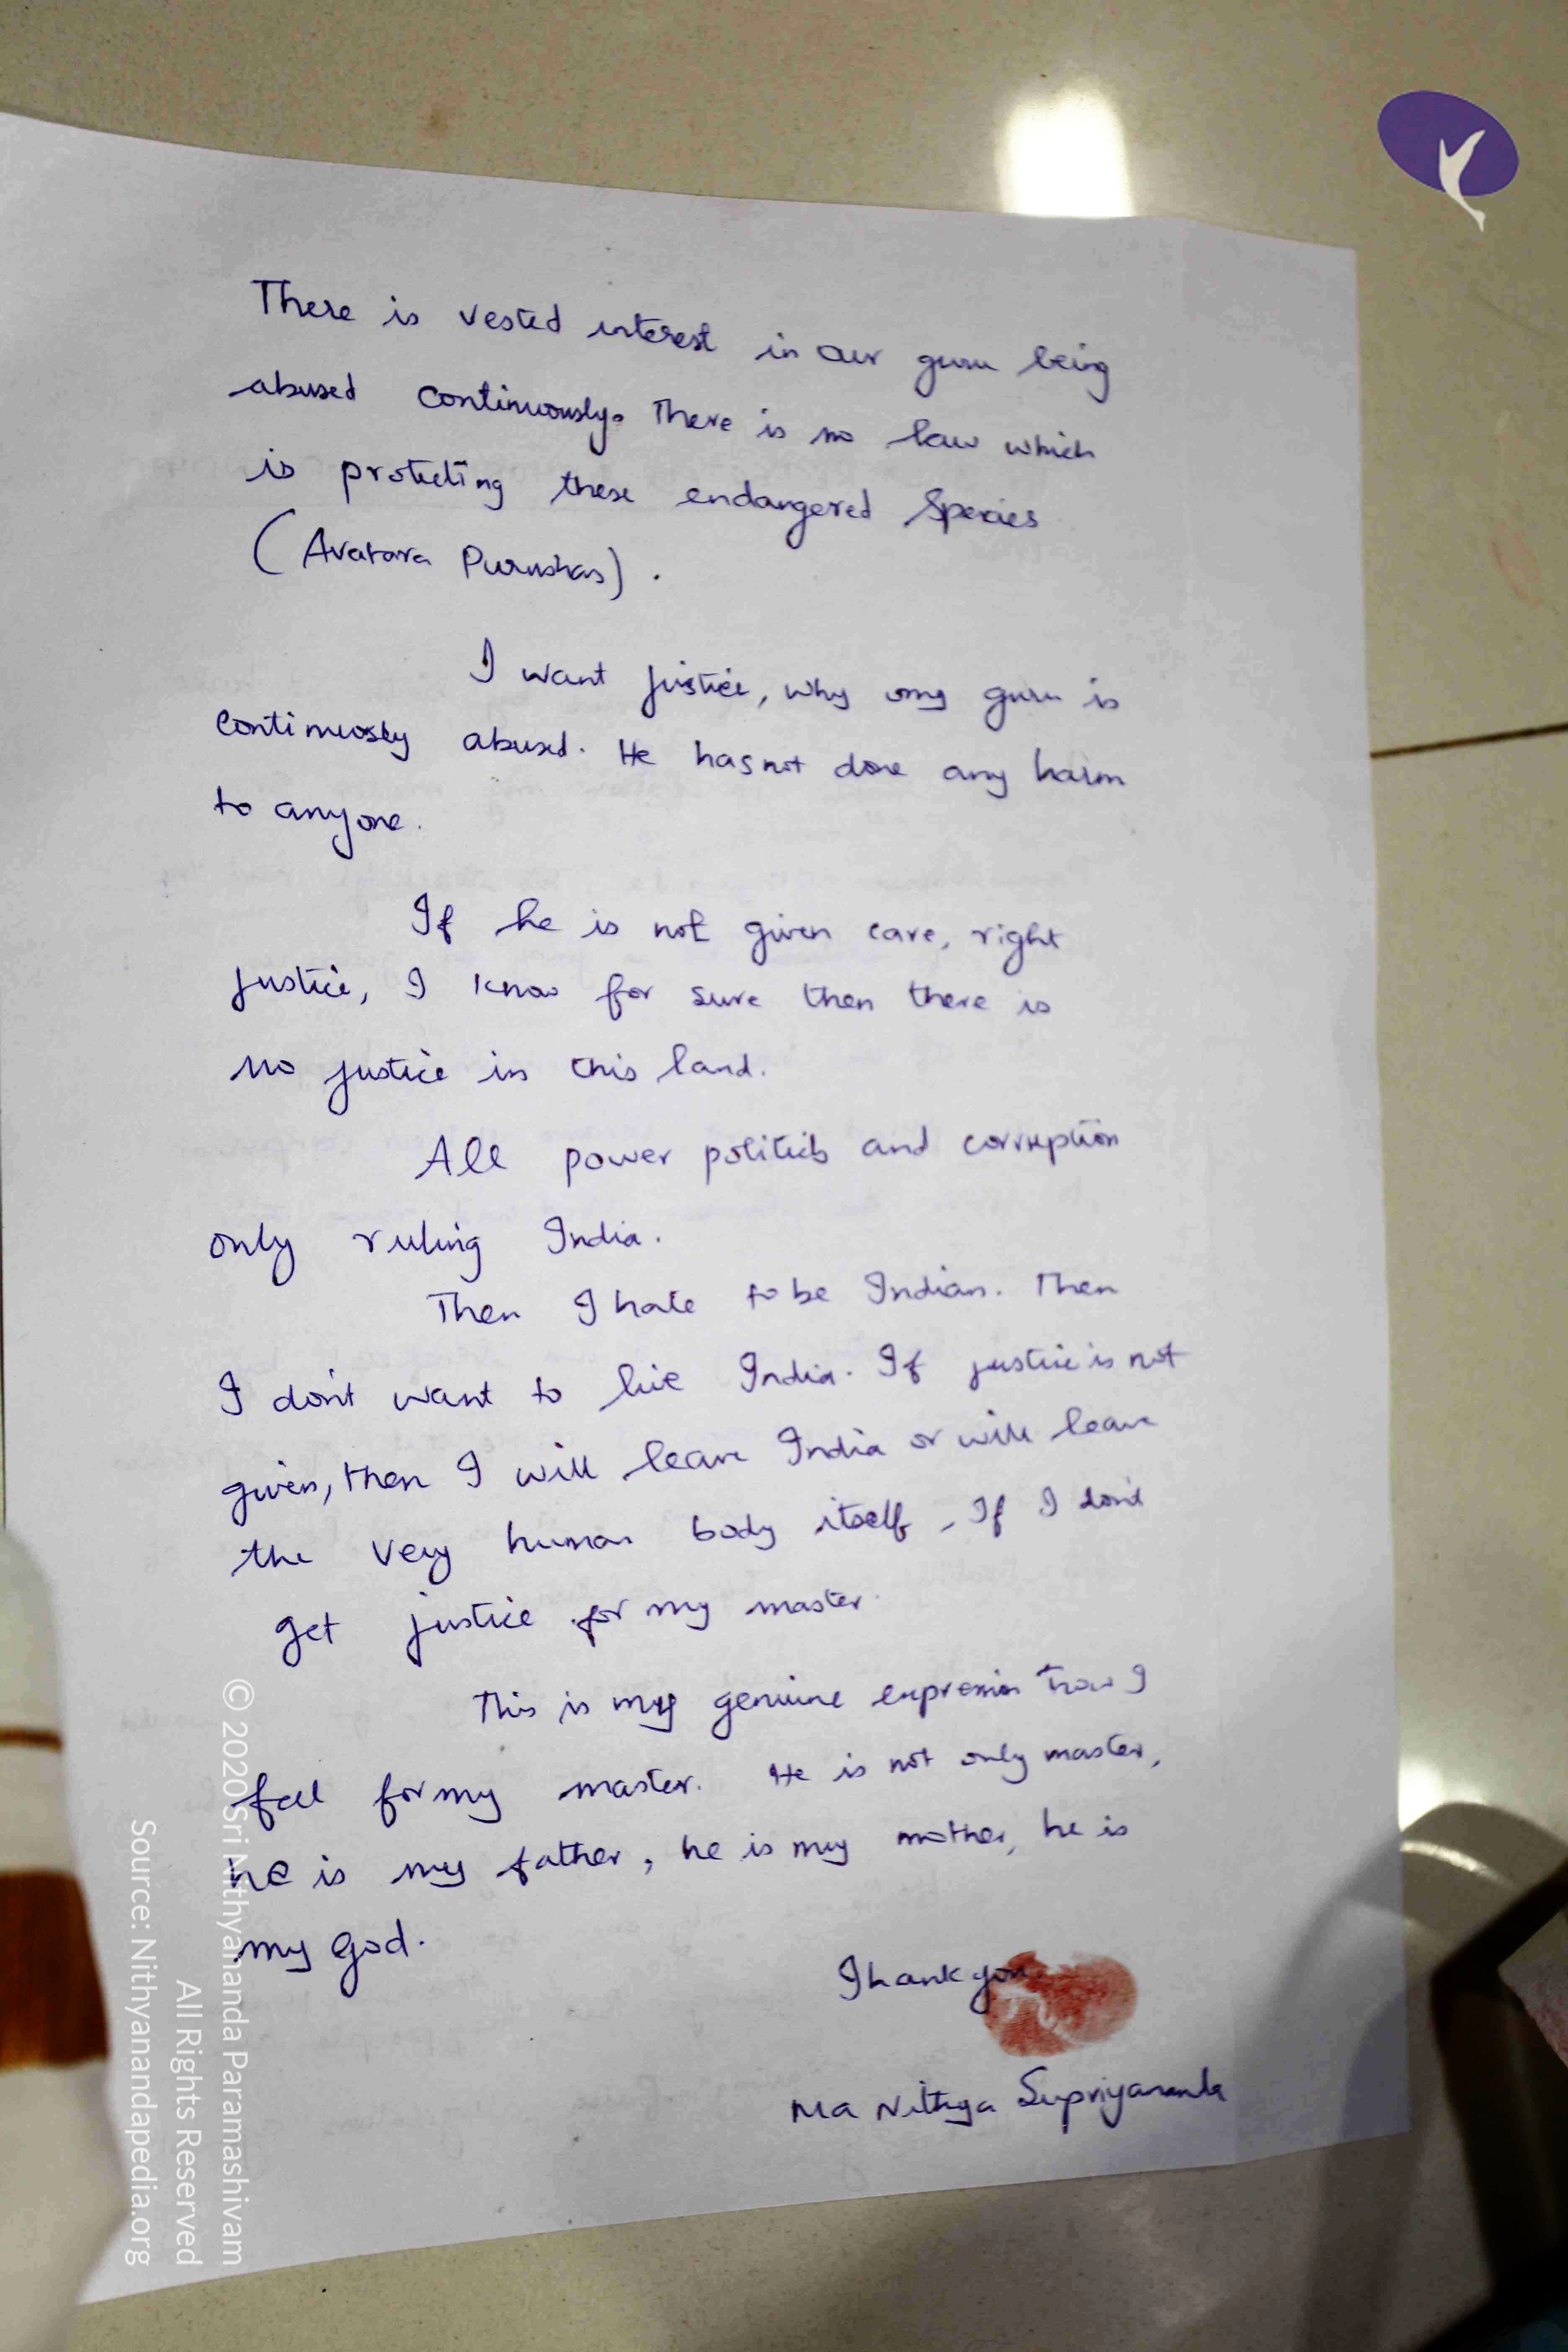 There is vested interest in our guru being
abused continuously. There is no law which
is protecting these endangered species
(Avatara Purushas).
I want justice, why my guru is
continuosly abused. He has not done any harm
to anyone.
If he is not given care, right
justice, I know for sure then there is
no justice in this land.
All power politics and corruption
only ruling India.
Then I hate to be Indian. Then
I don't want to live India. If justice is not
given, then I will leave India or will leave
the very human body itself, If I don't
get justice for my master.
This is my genuine expression how I
feel for my master. He is not only master,
he is my father, he is my mother, he is
my God.
Thank you
Ma Nithya Supriyananda
© 2020 Sri Nithyananda Paramashivam
All Rights Reserved
Source: Nithyanandapedia.org